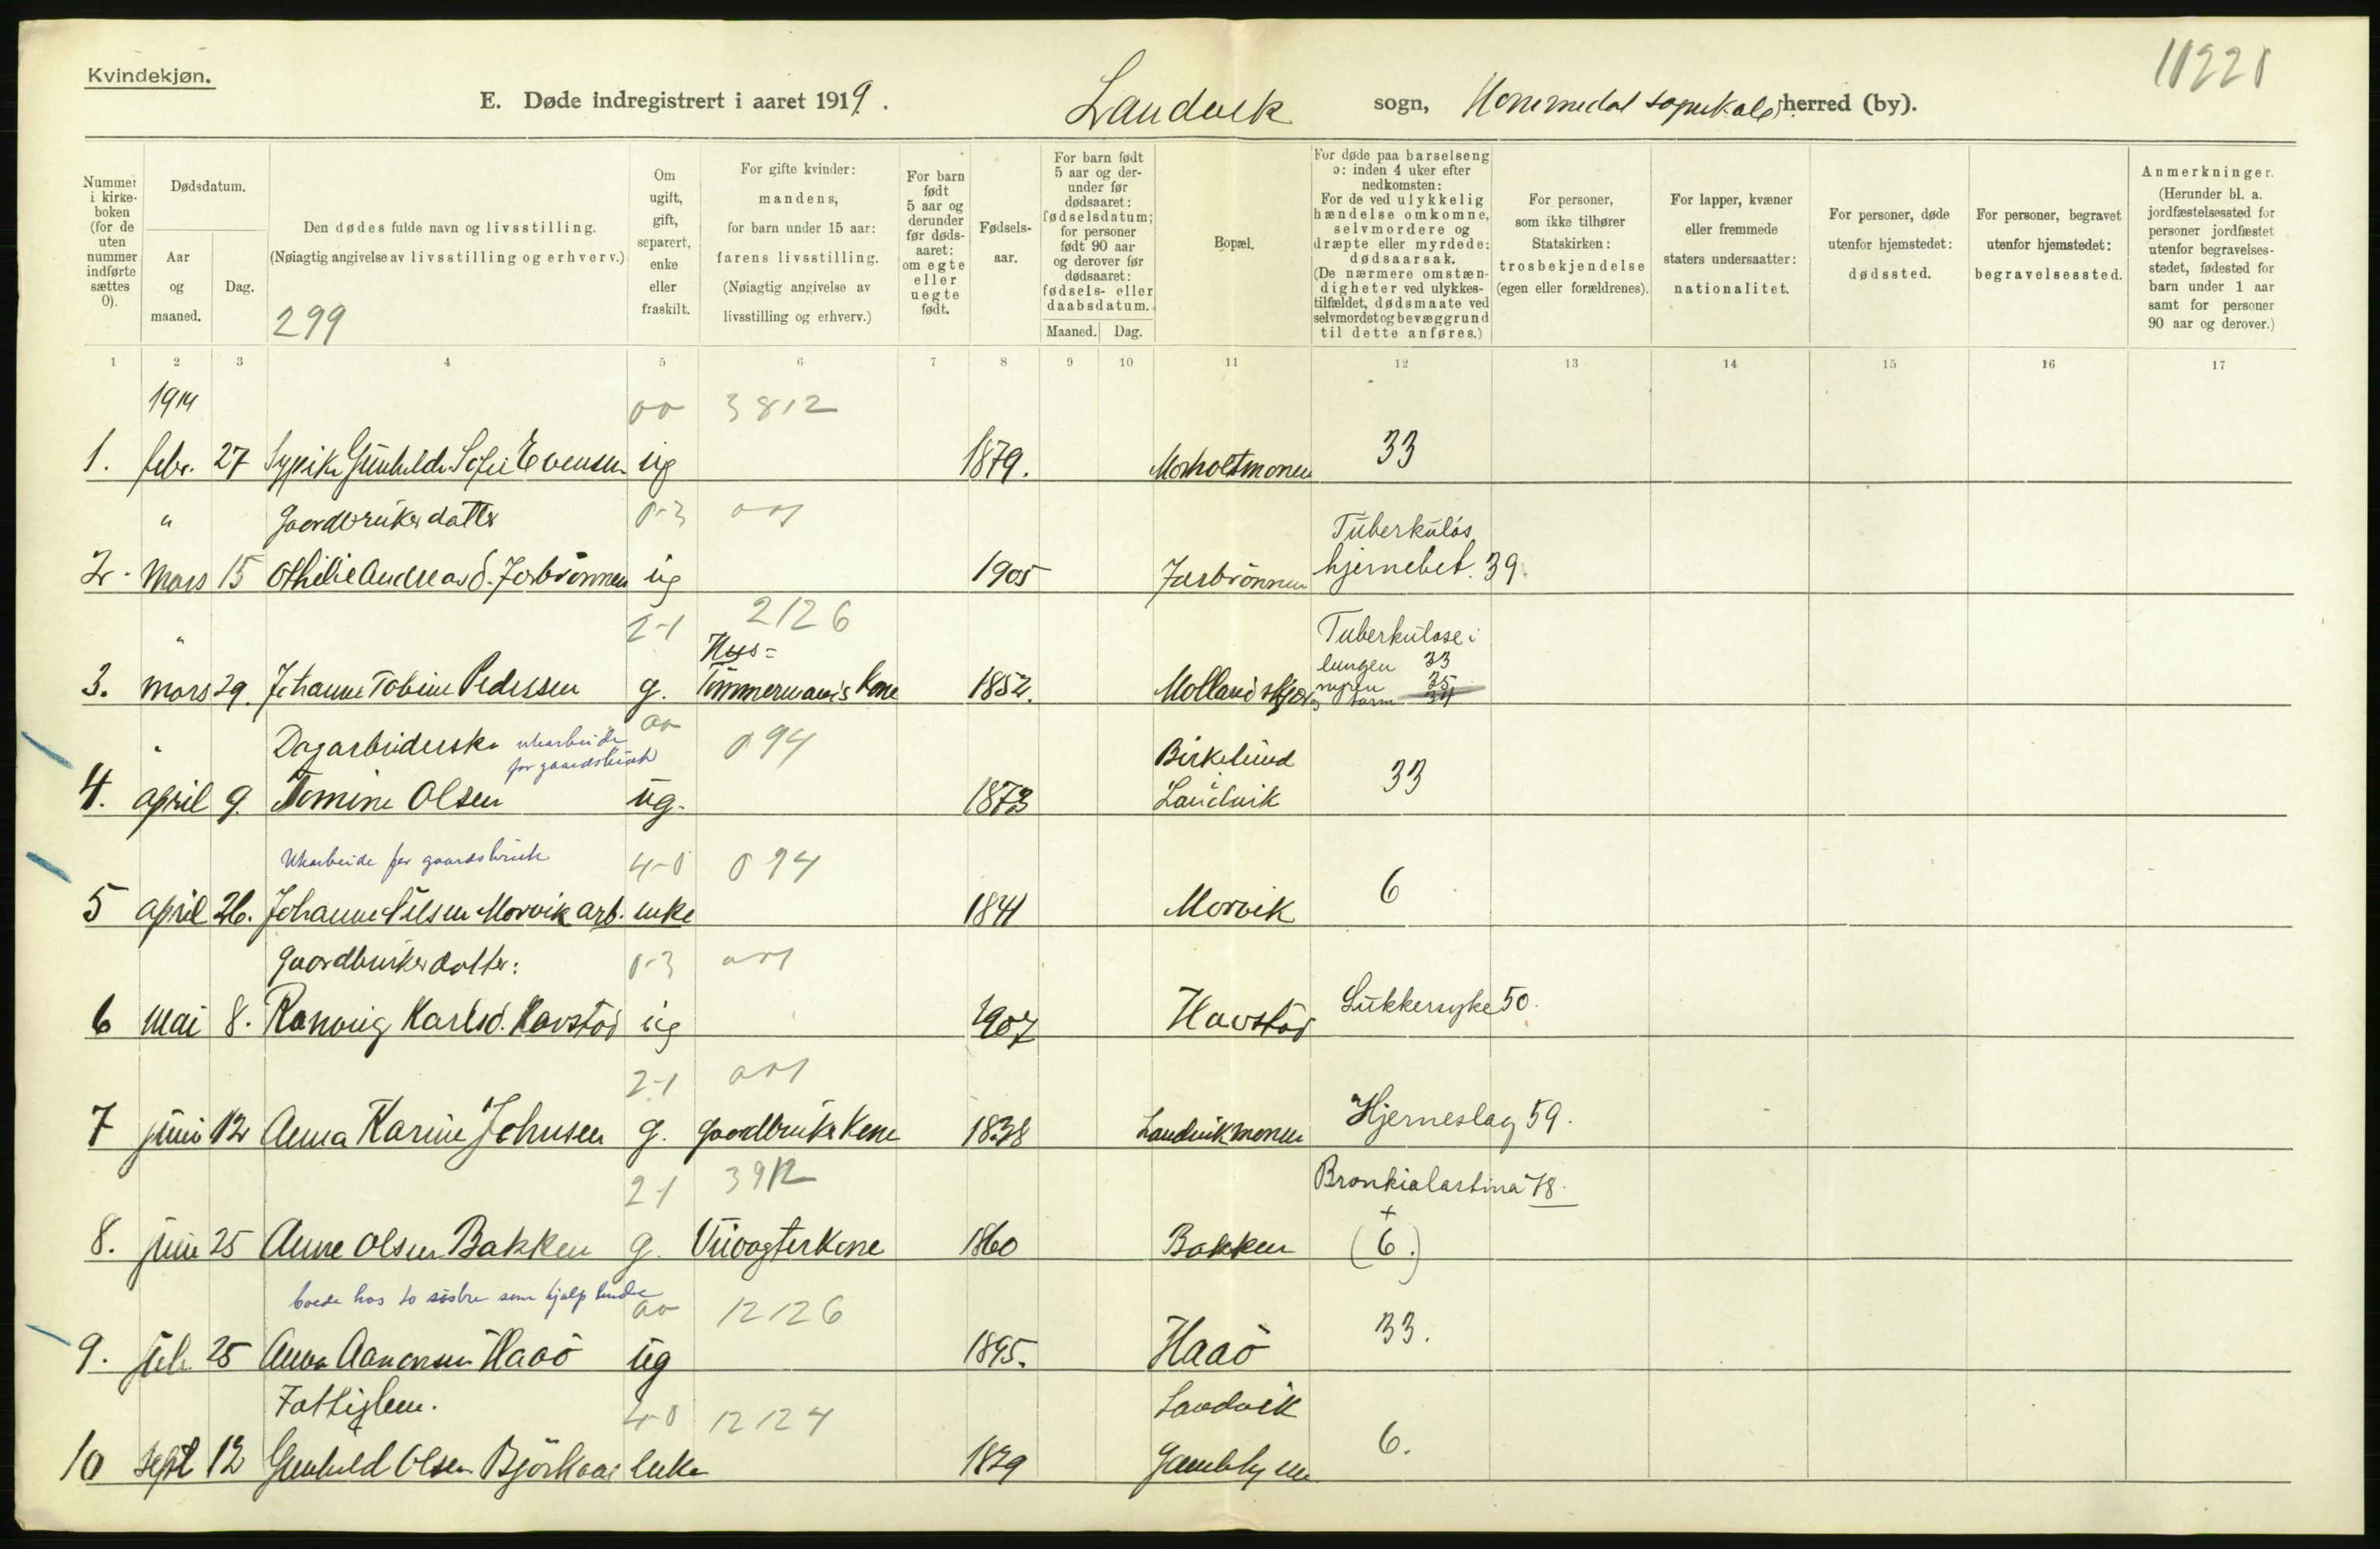 Kvindekjøn.
11221
E. Døde indregistrert i aaret 1919. Landvik sogn, Hommedal herred (by).
Nummer i kirkeboken (for de uten nummer indførte sættes 0).
Dødsdatum.
Aar og maaned.
Dag.
Den dødes fulde navn og livsstilling.
(Nøiagtig angivelse av livsstilling og erhverv.)
299
Om ugift, gift, separert, enke eller fraskilt.
For gifte kvinder: mandens, for barn under 15 aar: farens livsstilling.
(Nøiagtig angivelse av livsstilling og erhverv.)
For barn født 5 aar og derunder før dødsaaret: om egte eller uegte født.
Fødselsaar.
For barn født 5 aar og derunder før dødsaaret: fødselsdatum; for personer født 90 aar og derover før dødsaaret: fødsels- eller daabsdatum.
Maaned. Dag.
Bopæl.
For døde paa barselseng ɔ: inden 4 uker efter nedkomsten:
For de ved ulykkelig hændelse omkomne, selvmordere og dræpte eller myrdede: dødsaarsak.
(De nærmere omstændigheter ved ulykkestilfældet, dødsmaate ved selvmordet og bevæggrund til dette anføres.)
For personer, som ikke tilhører Statskirken: trosbekjendelse (egen eller forældrenes).
For lapper, kvæner eller fremmede staters undersaatter: nationalitet.
For personer, døde utenfor hjemstedet: dødssted.
For personer, begravet utenfor hjemstedet: begravelsessted.
Anmerkninger.
(Herunder bl. a. jordfæstelsessted for personer jordfæstet utenfor begravelsesstedet, fødested for barn under 1 aar samt for personer 90 aar og derover.)
1 2 3 4 5 6 7 8 9 10 11 12 13 14 15 16 17
1919 3812
1. febr. 27 Sypike Gunhilde Sofie Evensen ug 1879. Morholtmonen 33
" Gaardbruker datter 0-3 Tuberkuløs
2. Mars 15 Othilie Andreasd. Jorbrönnen ug 1905 Jorbrönnen hjernebet. 39.
" 2-1 2126 Tuberkulose i
Hus= lungen 33
3. mars 29. Johanne Tobine Pedersen g. Tömmermands Kone 1852. Molland nyren 35
tarm 34
" Dagarbeiderske utearbeide 094 Birkelund
for gaardsbruk
4. april 9. Tomine Olsen ug. 1873 Landvik 33
Utearbeide for gaardsbruk 4-0 094
5 april 26. Johanne Nilsen Morvik arb. enke 1841 Morvik 6
Gaardbruker datter: 0-3
6 Mai 8. Ranvig Karlsd. Havstad ug 1907 Havstad Sukkersyke 50.
2-1
7 juni 12 Anna Karine Johnsen g. Gaardbruker Kone 1838 Landvikmonen Hjerneslag 59.
2-1 3912 Bronkialastma 78.
8. juni 25 Anne Olsen Bakken g. Kone 1860 Bakken (6.)
boede hos to søstre som hjalp hende 12126
9. juli 25 Anna Aanonsen Haaö ug 1895. Haaö 33.
Fattiglem. 4-0 12124 Landvik
10 sept 12 Gunhild Olsen Björkaas enke 1829 6.